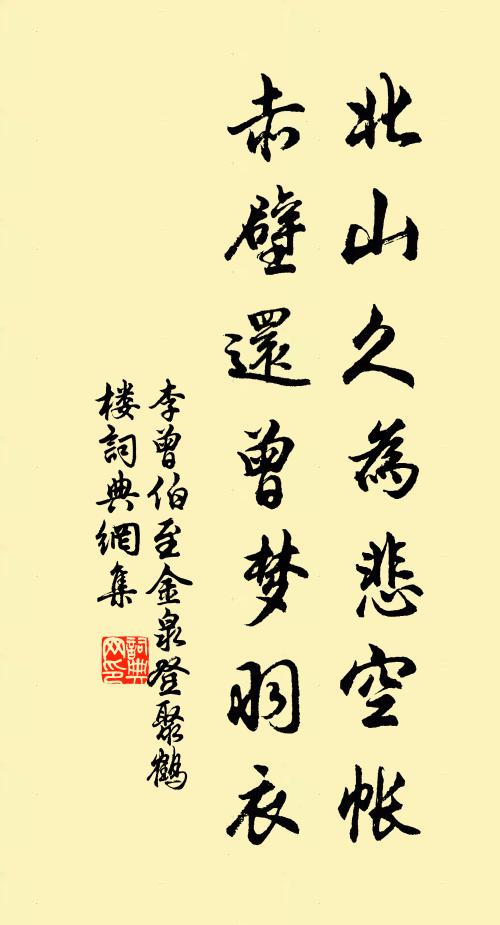 北山久為悲空帳
赤壁還曾梦羽衣
李曾伯至金泉登聚鶴
楼詞典網集
詞典网印